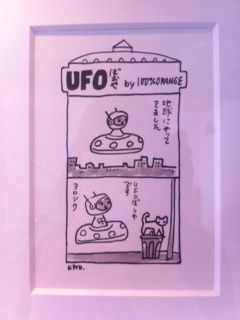 UFO ぼうや by 100%ORANGE
地球にやって
きました
UFOぼうや
です
ヨロシク
END.